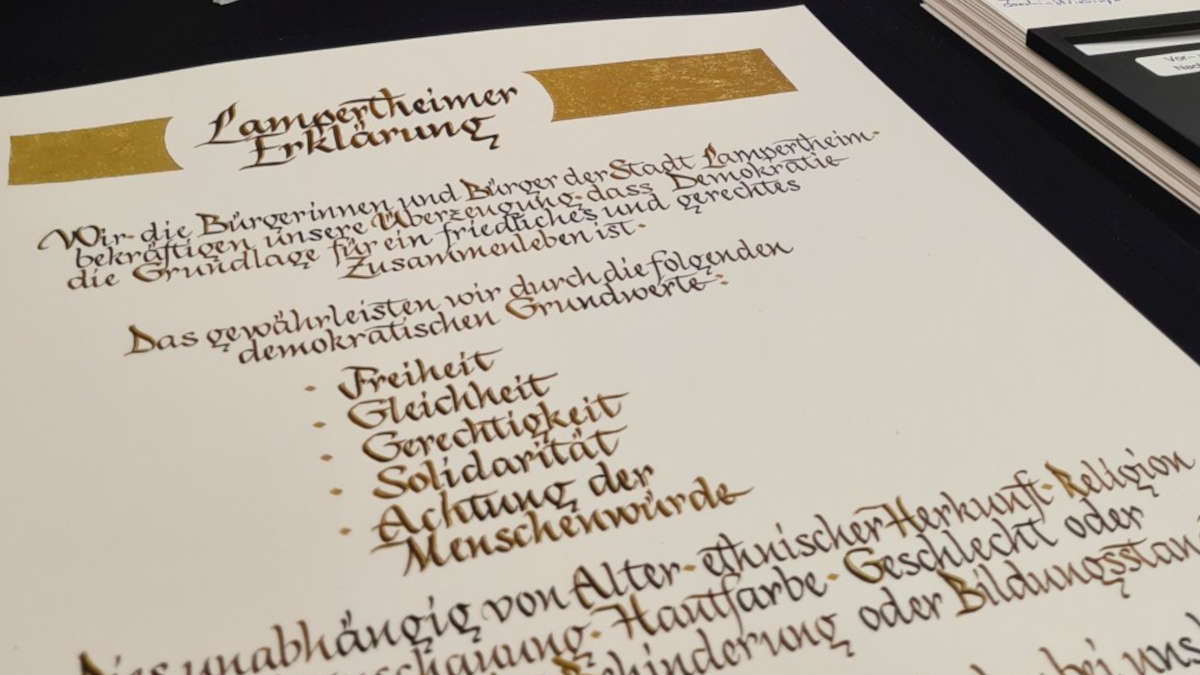 Lampertheimer
Erklärung
Wir· die Bürgerinnen und Bürger der Stadt Lampertheim·
bekräftigen unsere Überzeugung· dass Demokratie
die Grundlage für ein friedliches und gerechtes
Zusammenleben ist·
Das gewährleisten wir durch die folgenden
demokratischen Grundwerte:
· Freiheit
· Gleichheit
· Gerechtigkeit
· Solidarität
· Achtung der
Menschenwürde
Dies unabhängig von Alter· ethnischer Herkunft· Religion
Hautfarbe· Geschlecht oder
Behinderung oder Bildungsstan
bei uns
Vor-